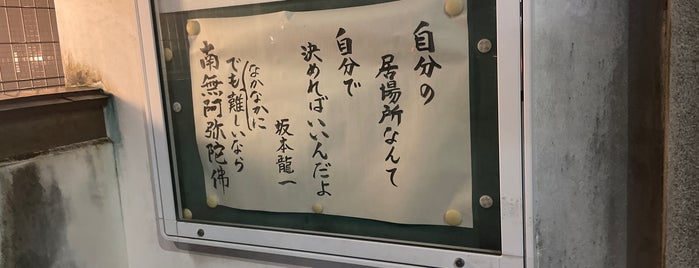 自分の
居場所なんて
自分で
決めればいいんだよ
坂本龍一
なかなかに
でも難しいなら
南無阿弥陀佛